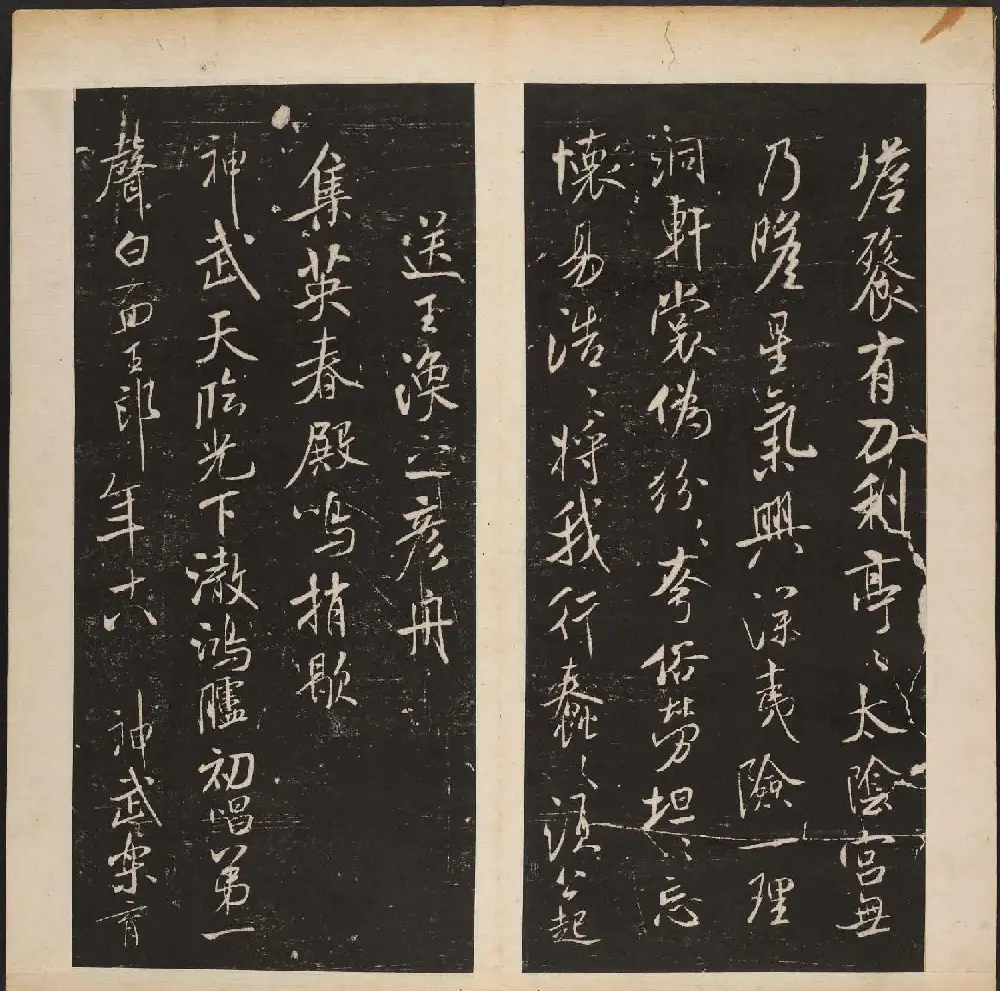 有刀利亭〻太陰宮無
乃瞻星氣興深夷險一理
洞軒裳偽紛〻夸俗勞坦〻忘
懷易浩〻將我行蠢〻須公起
送王渙之彥舟
集英春殿鳴捎歇
神武天臨光下澈鴻臚初唱第一
聲白面王郎年十八 神武樂育